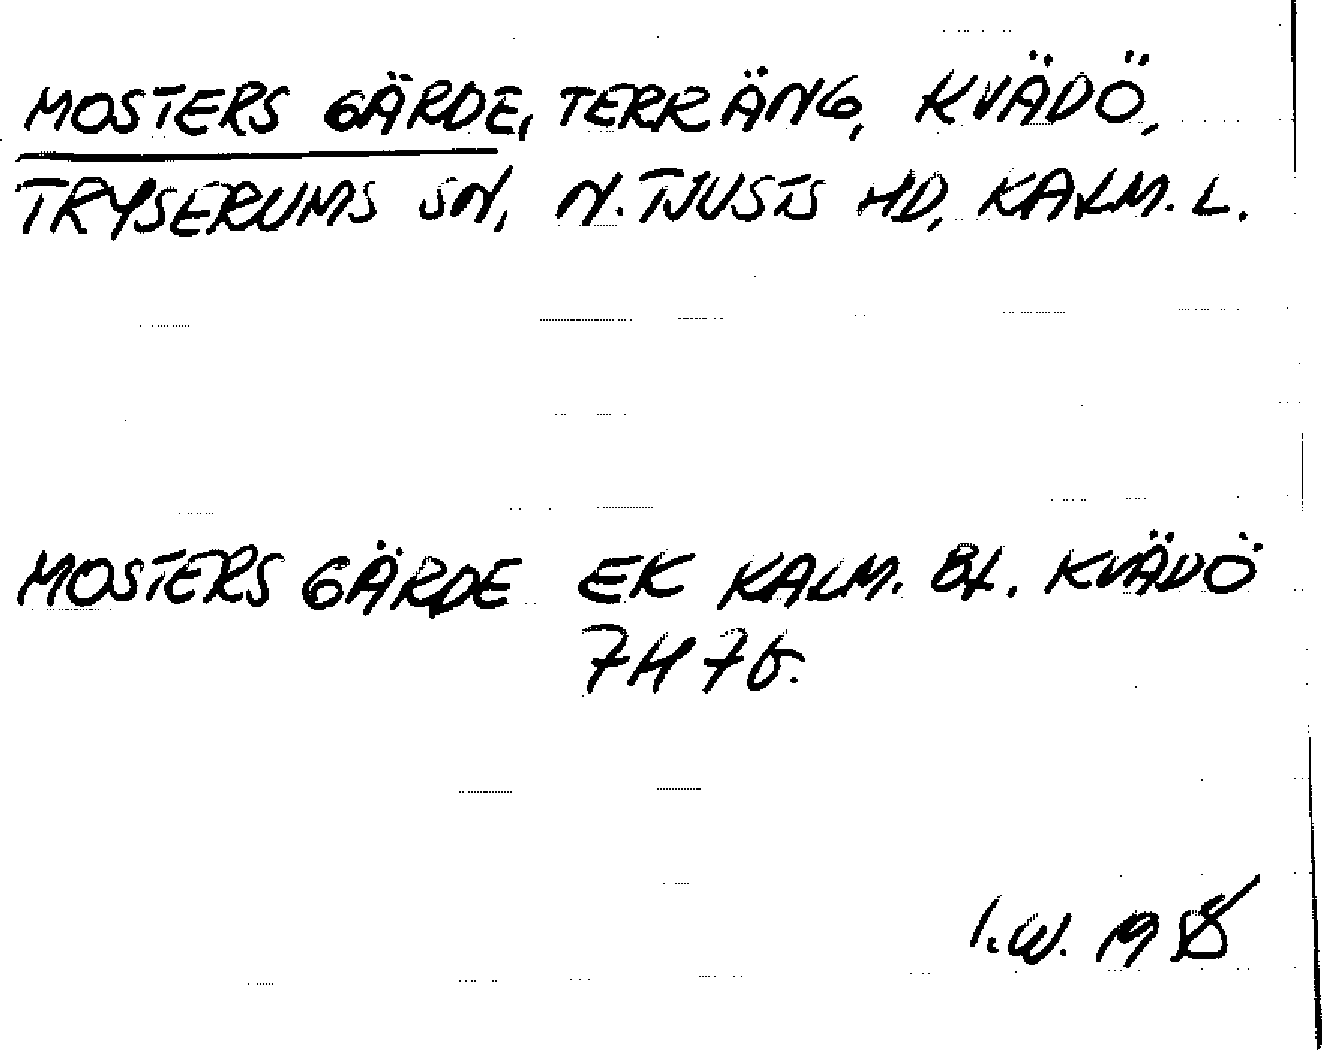 MOSTERS GÄRDE, TERRÄNG, KVÄDÖ,
TRYSERUMS SN, N. TJUSTS HD, KALM. L.
MOSTERS GÄRDE EK KALM. BL. KVÄDÖ
7H 7G.
I.W. 19